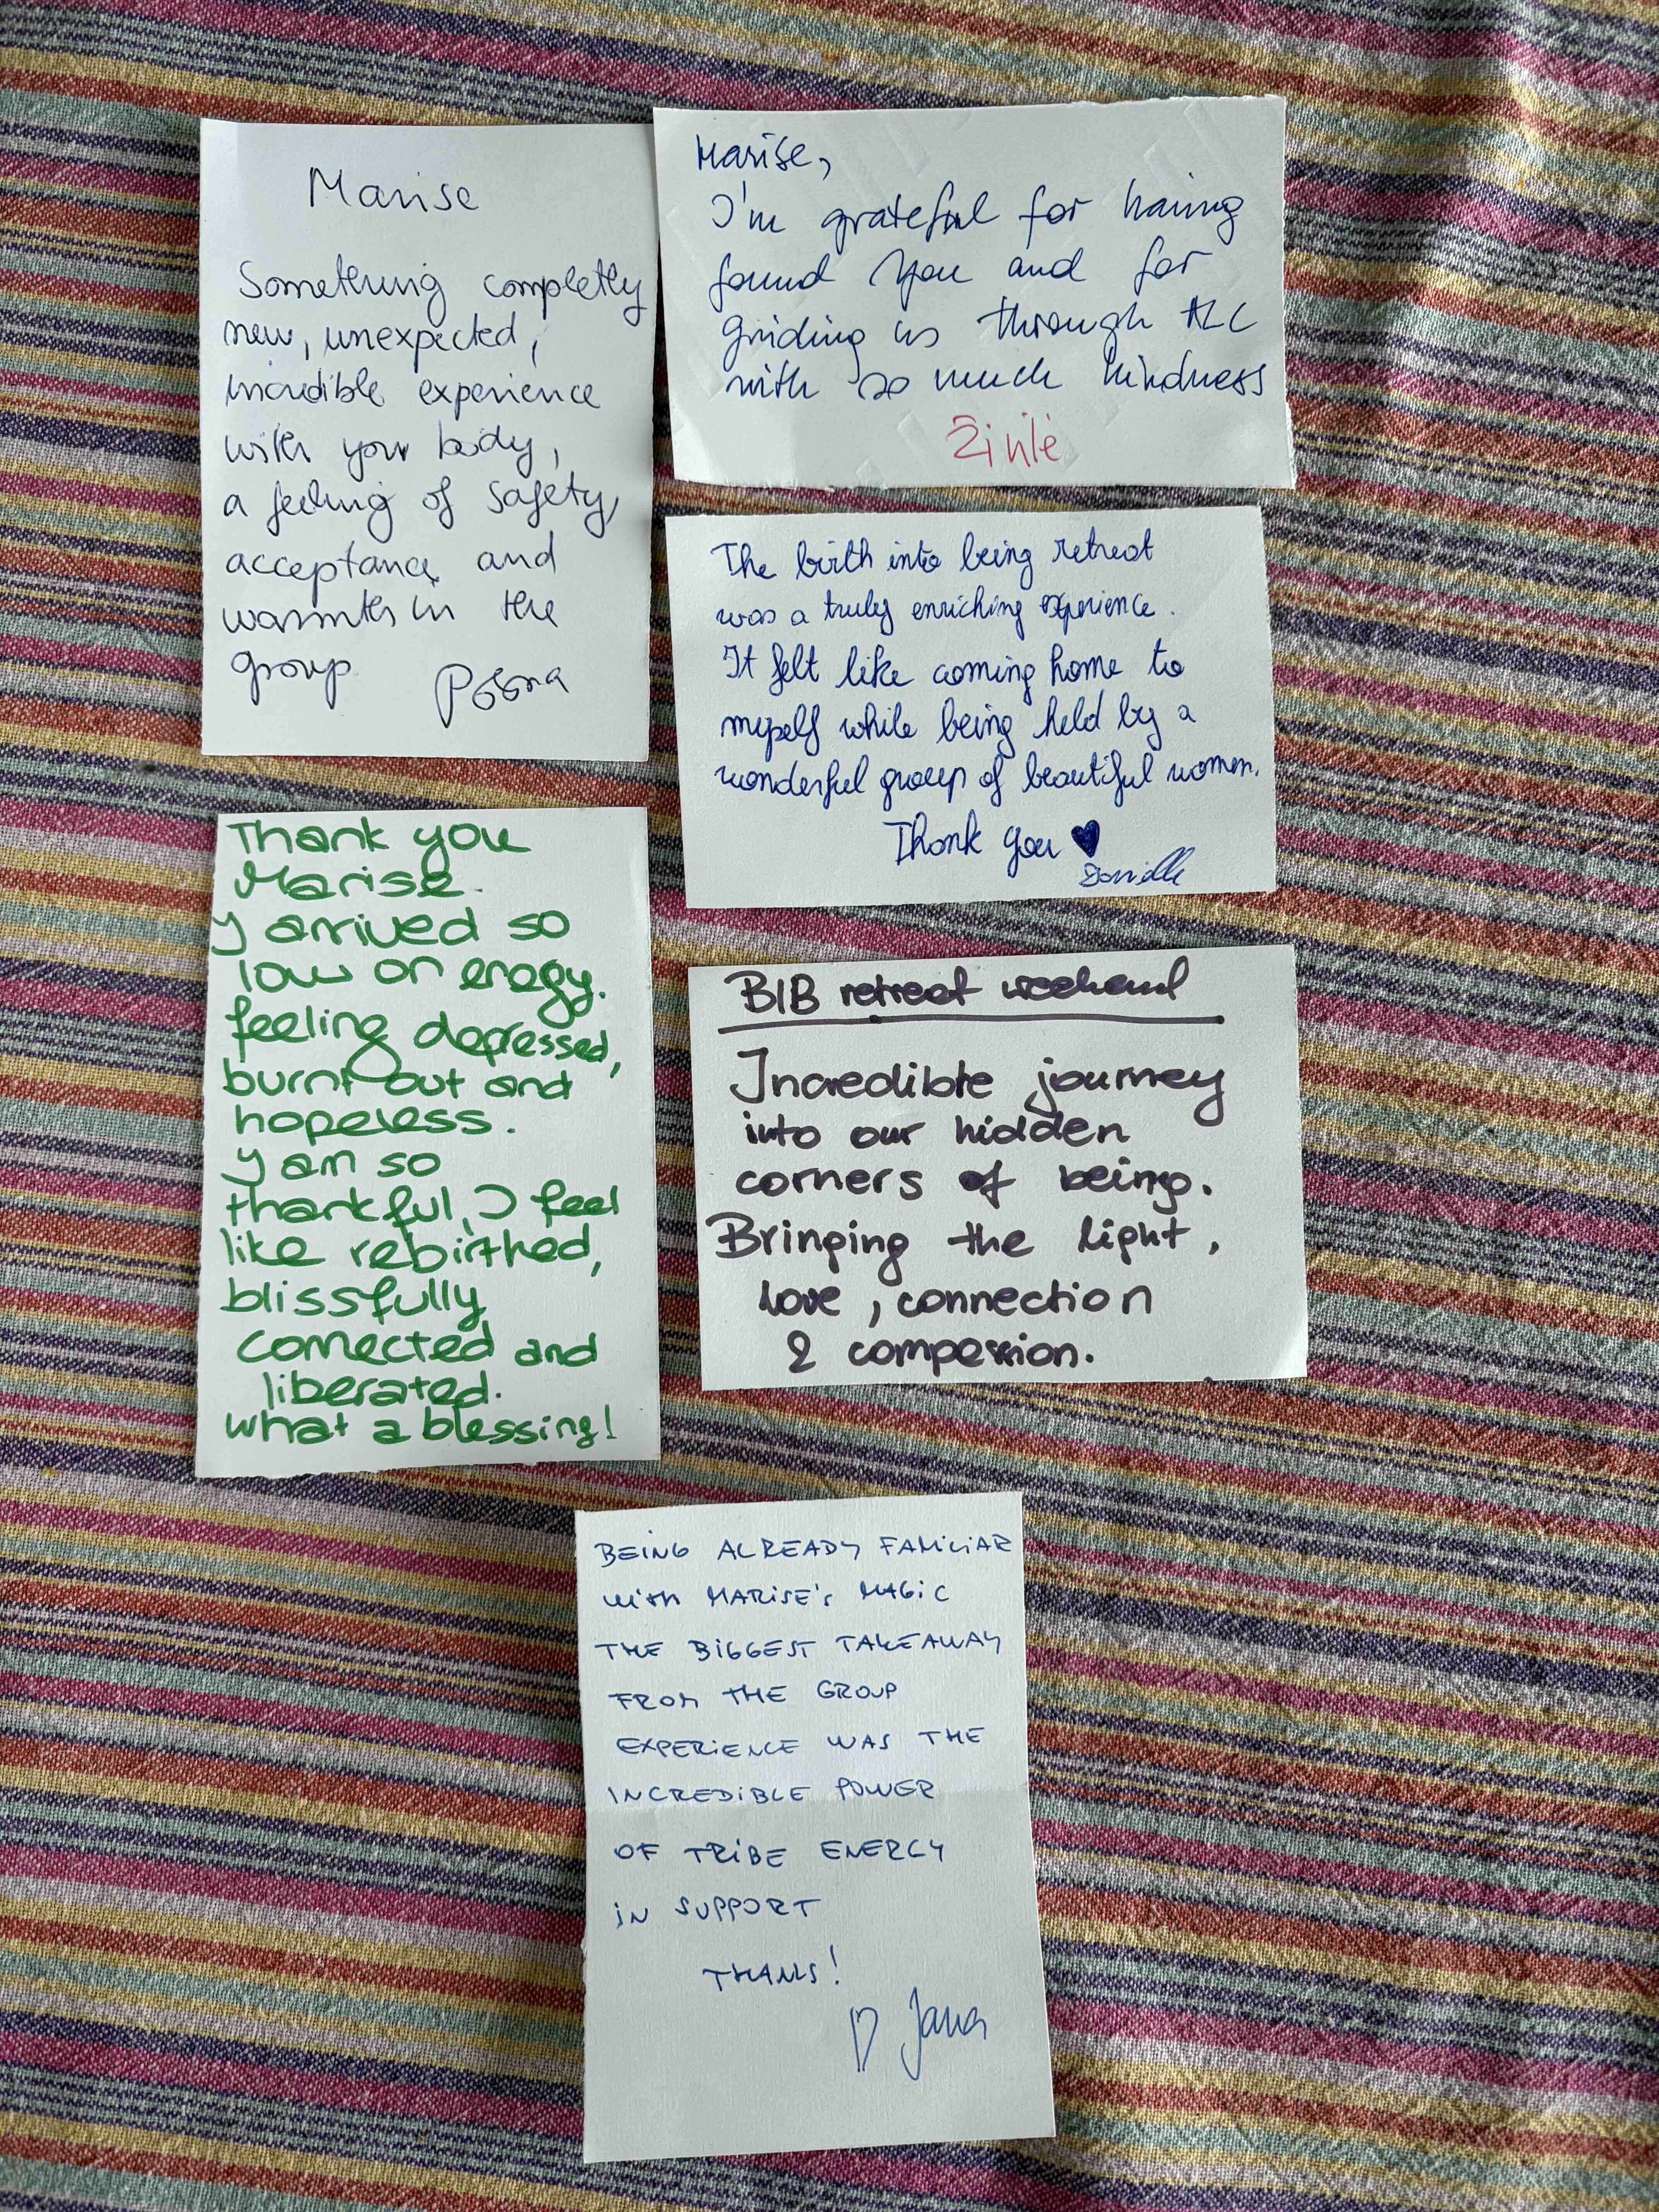 Marise
Something completly
new, unexpected,
incredible experience
with your body,
a feeling of safety,
acceptance and
warmth in the
group
Marise,
I'm grateful for having
found you and for
guiding us through
with so much kindness
The birth into being retreat
was a truly enriching experience.
It felt like coming home to
myself while being held by a
wonderful group of beautiful women.
Thank you ♥
Thank you
Marise.
y arrived so
low on enegy.
feeling depressed,
burnt out and
hopeless.
y am so
thankful, I feel
like rebirthed,
blissfully
connected and
liberated.
what a blessing!
BIB retreat weekend
Incredible journey
into our hidden
corners of being.
Bringing the light,
love, connection
& compession.
BEING ALREADY FAMILIAR
with MARISE'S MAGIC
THE BIGGEST TAKEAWAY
FROM THE GROUP
EXPERIENCE WAS THE
INCREDIBLE POWER
OF TRIBE ENERGY
IN SUPPORT
THANKS!
♡ Jana